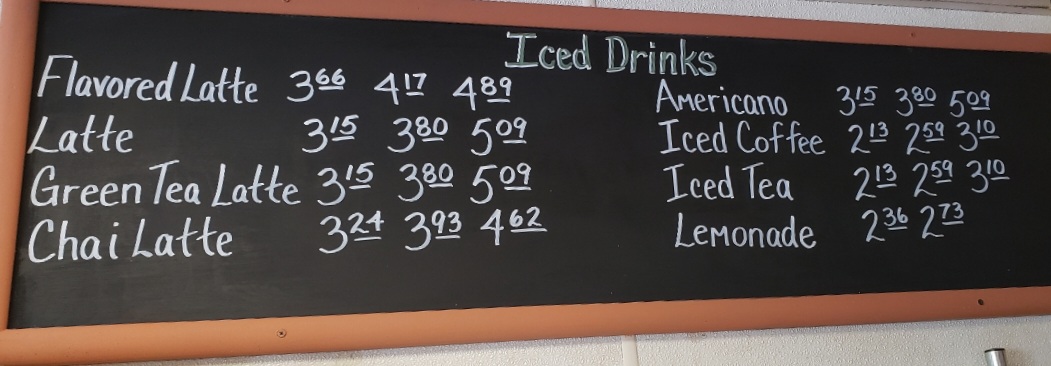 Iced Drinks
Flavored Latte 3.66 4.17 4.89
Latte 3.15 3.80 5.09
Green Tea Latte 3.15 3.80 5.09
Chai Latte 3.24 3.93 4.62
Americano 3.15 3.80 5.09
Iced Coffee 2.13 2.59 3.10
Iced Tea 2.13 2.59 3.10
Lemonade 2.36 2.73